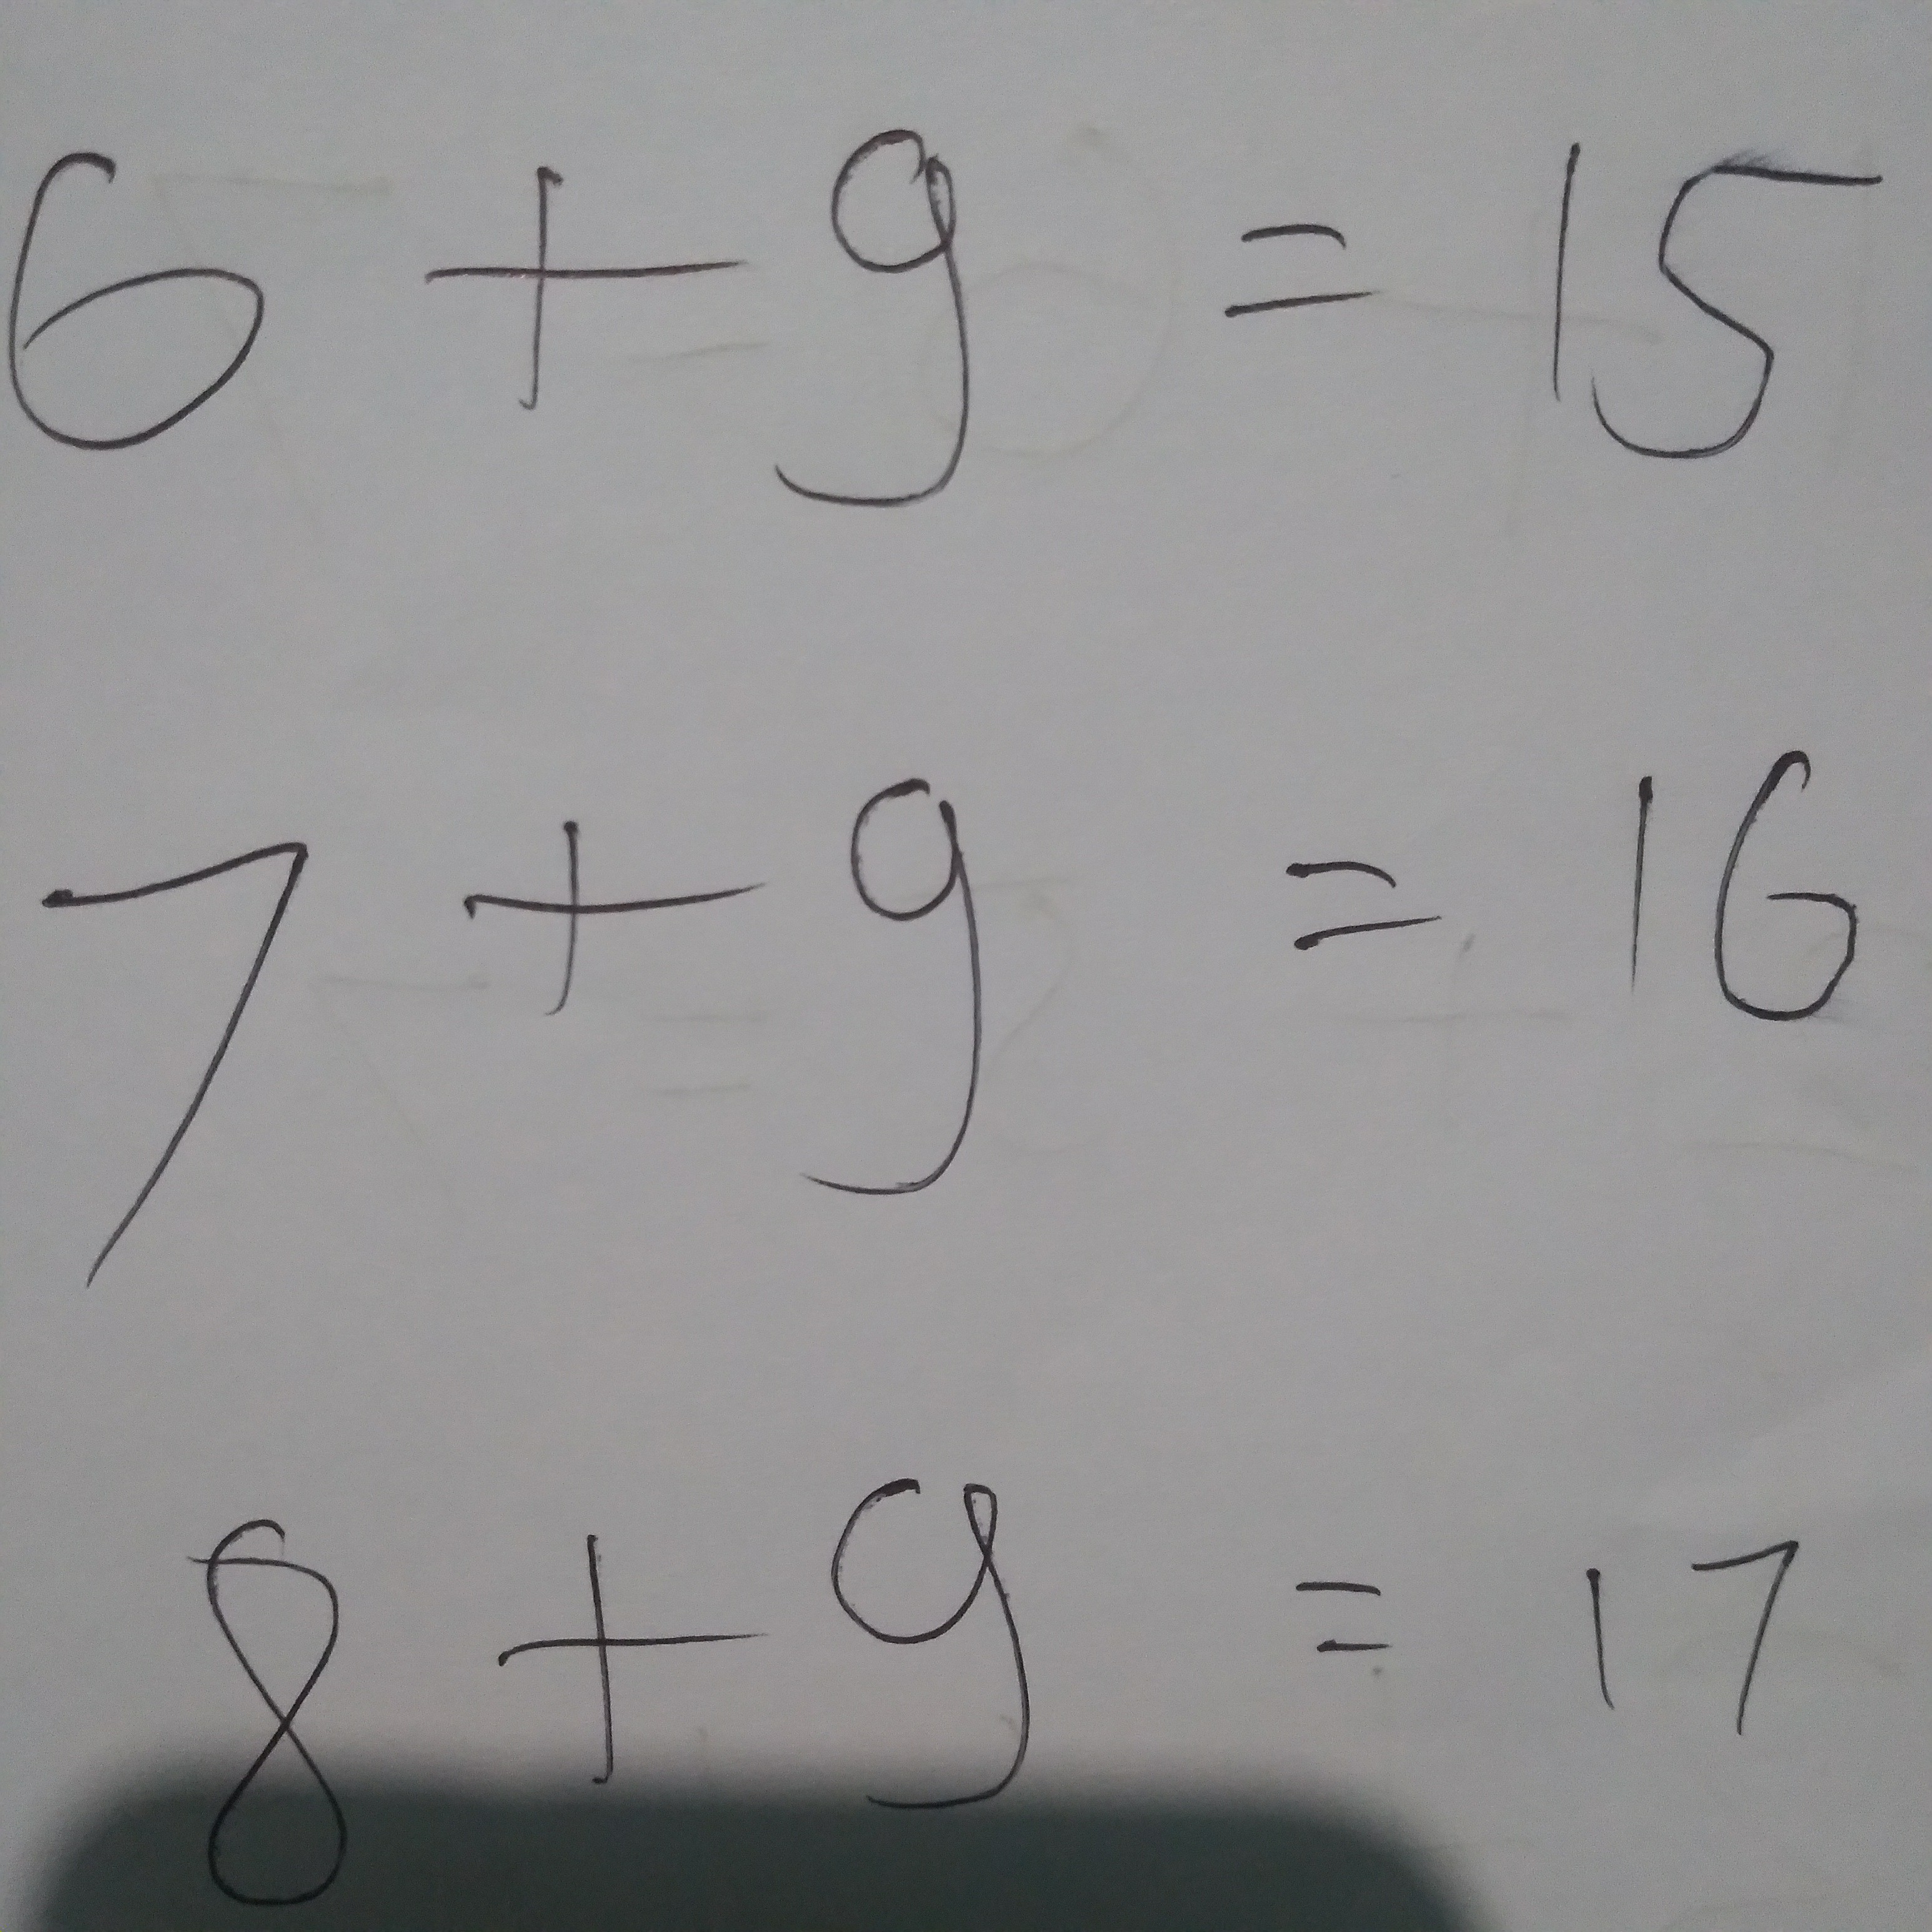 6 + 9 = 15
7 + 9 = 16
8 + 9 = 17